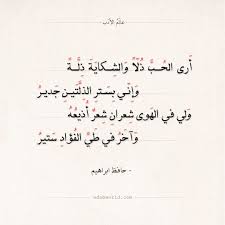 - عالم الأدب -
أَرى الحُبَّ ذُلّاً وَالشِكايَةَ ذِلَّةً
وَإِنّي بِسَترِ الذِلَّتَينِ جَديرُ
وَلي في الهَوى شِعرانِ شِعرٌ أُذيعُهُ
وَآخَرُ في طَيِّ الفُؤادِ سَتيرُ
- حافظ ابراهيم -
adabworld.com